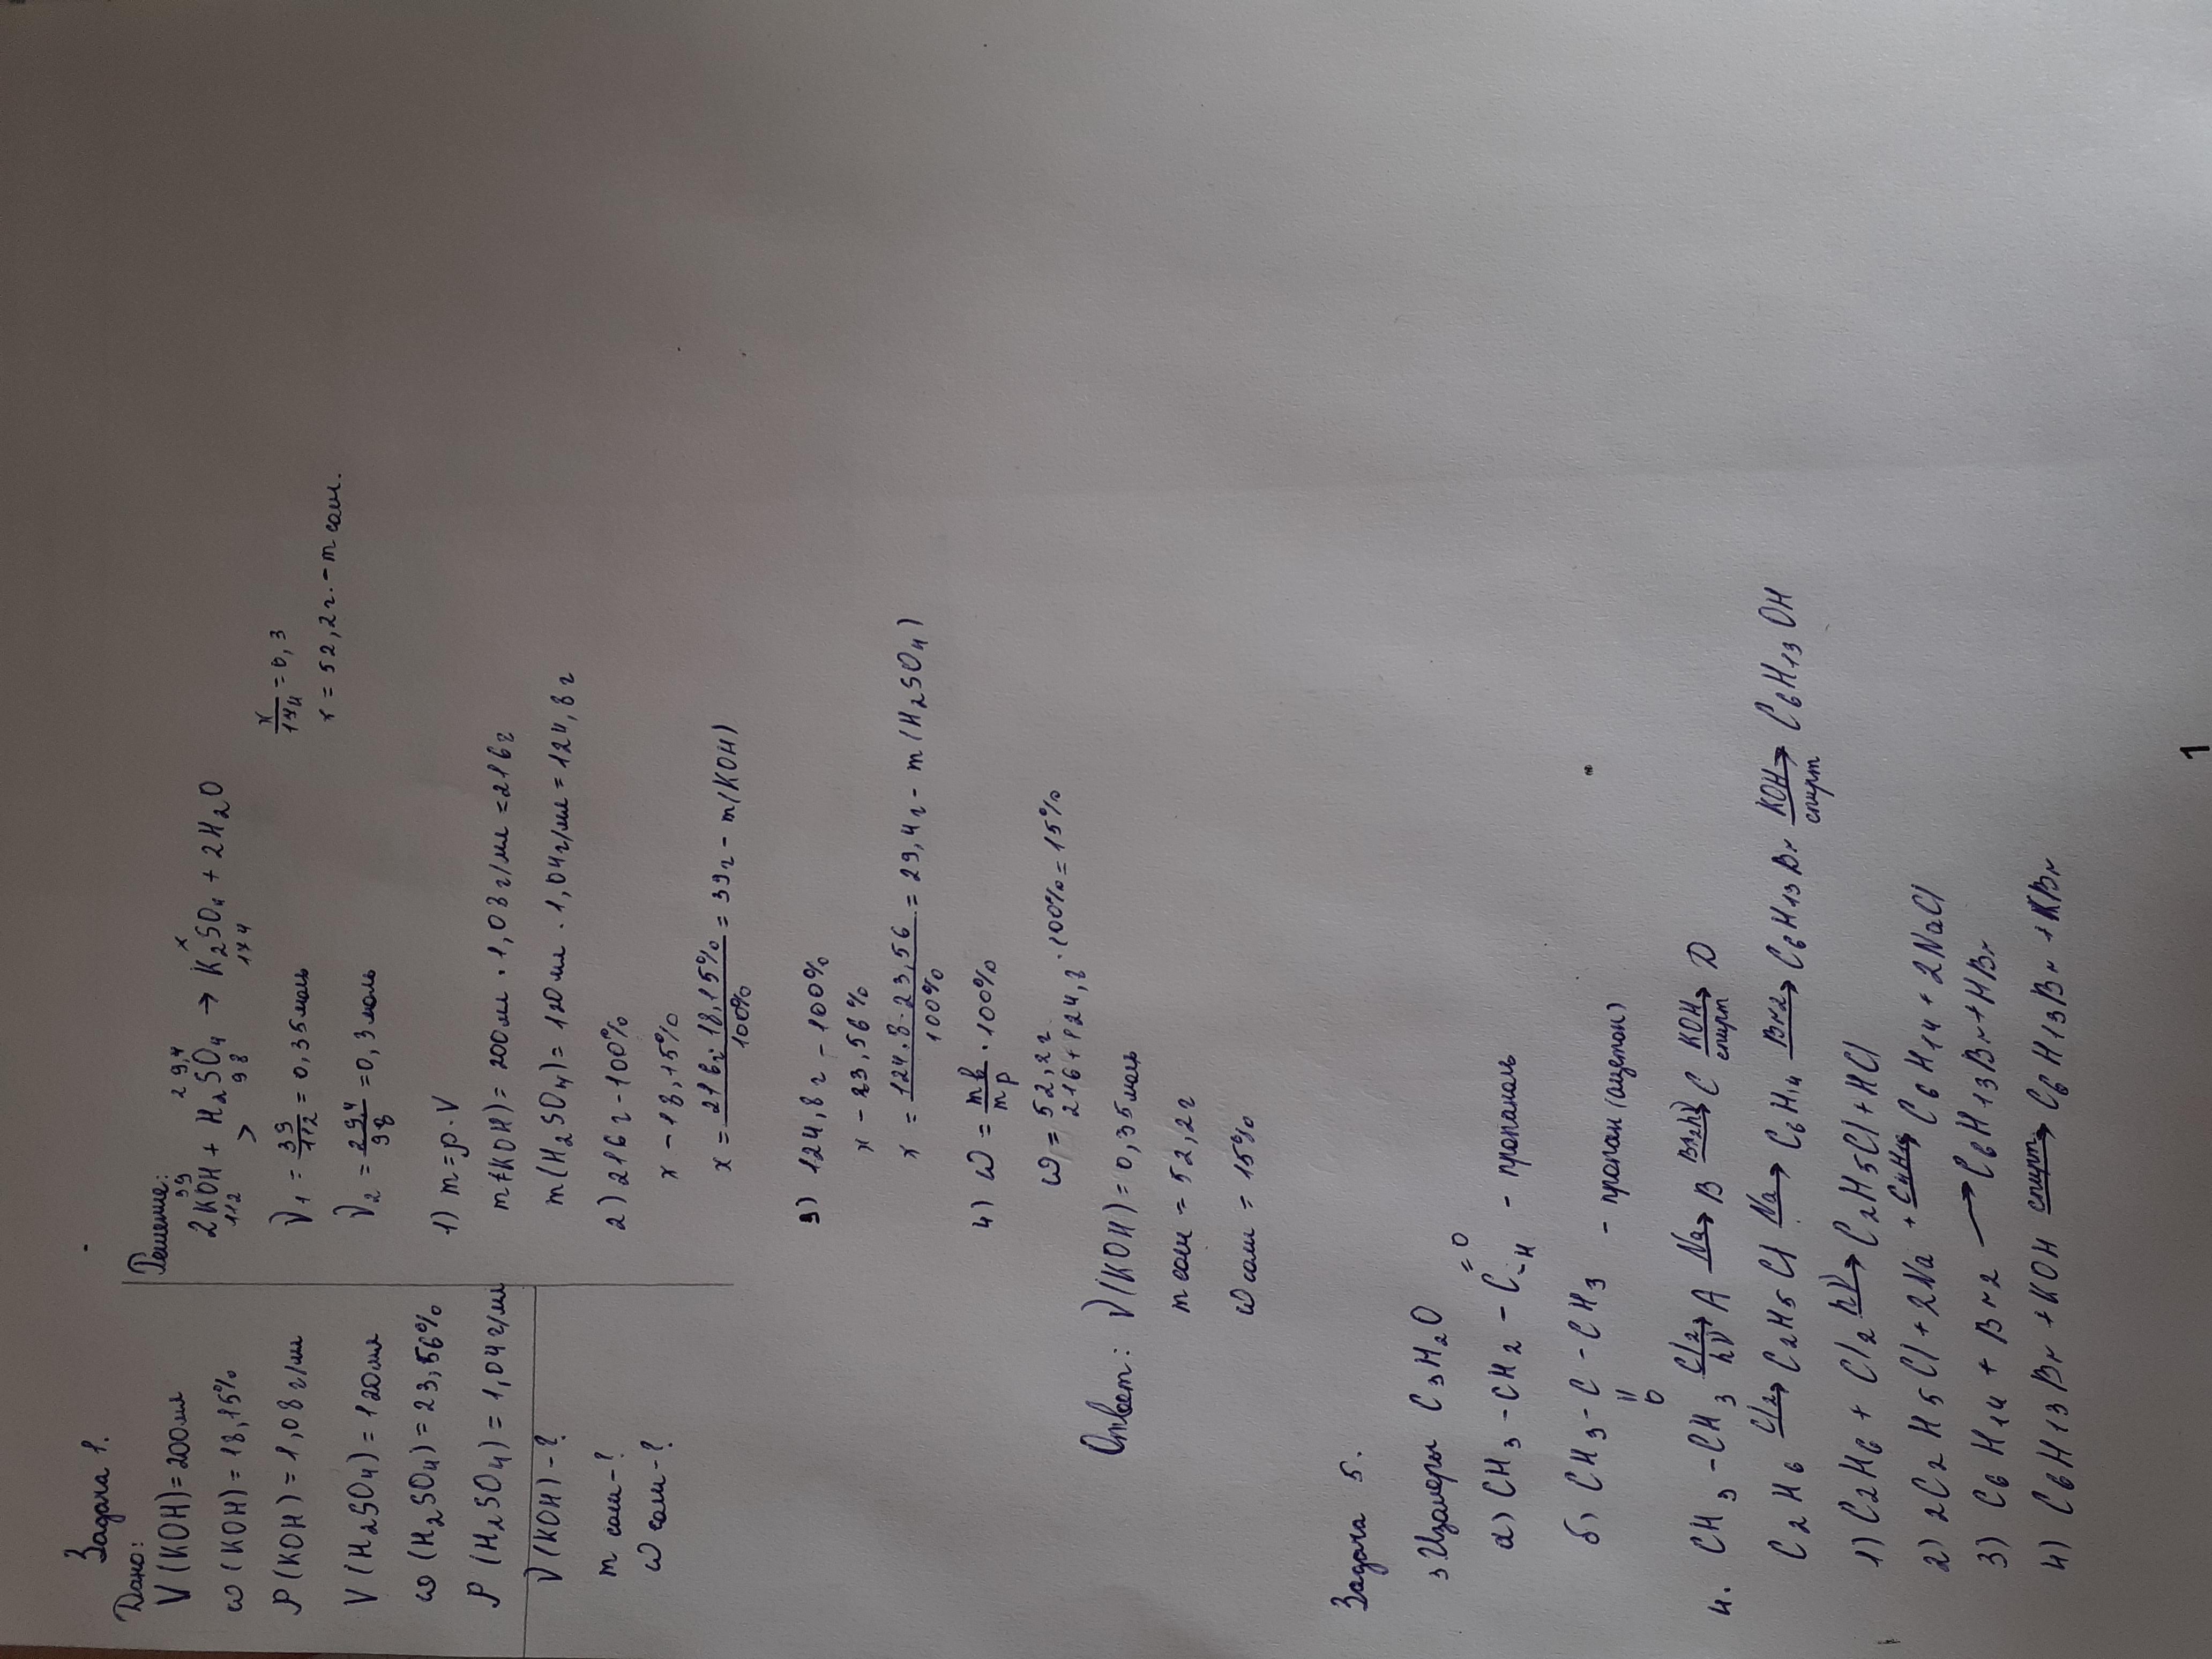 Задача 1.
Дано:
V(KOH)=200мл
ω(KOH)=18,15%
ρ(KOH)=1,08г/мл
V(H2SO4)=120мл
ω(H2SO4)=23,56%
ρ(H2SO4)=1,04г/мл
ν(KOH)-?
m соли-?
ω соли-?
Решение:
39 29,4 x
2KOH + H2SO4 → K2SO4 + 2H2O
112 > 98 174
ν1 = 39/112 = 0,35моль
x/174 = 0,3
ν2 = 29,4/98 = 0,3моль
x = 52,2г. - m соли.
1) m=ρ·V
m(KOH)=200мл · 1,08г/мл = 216г
m(H2SO4)=120мл · 1,04г/мл = 124,8г
2) 216г - 100%
x - 18,15%
x = 216г·18,15%/100% = 39г - m(KOH)
3) 124,8г - 100%
x - 23,56%
x = 124,8·23,56/100% = 29,4г - m(H2SO4)
4) ω = mв/mр · 100%
ω = 52,2г/216+124,8 · 100% = 15%
Ответ: ν(KOH)=0,35моль
m соли = 52,2г
ω соли = 15%
Задача 5.
3 Изомеры C3H2O
а) CH3 - CH2 - C =O -H - пропаналь
б) CH3 - C - CH3 - пропан (ацетон)
=
O
4. CH3 - CH3 Cl2/hν→ A Na→ B Br2hν→ C KOH/спирт→ D
C2H6 Cl2→ C2H5Cl Na→ C6H14 Br2→ C6H13Br KOH/спирт→ C6H13OH
1) C2H6 + Cl2 hν→ C2H5Cl + HCl
2) 2C2H5Cl + 2Na + C4H9→ C6H14 + 2NaCl
3) C6H14 + Br2 → C6H13Br + HBr
4) C6H13Br + KOH спирт→ C6H13Br + KBr
1